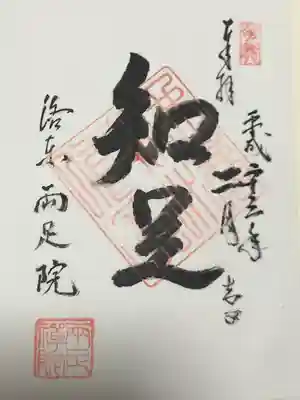 奉拝
平成二十三年
二月吉日
知足
洛東 両足院